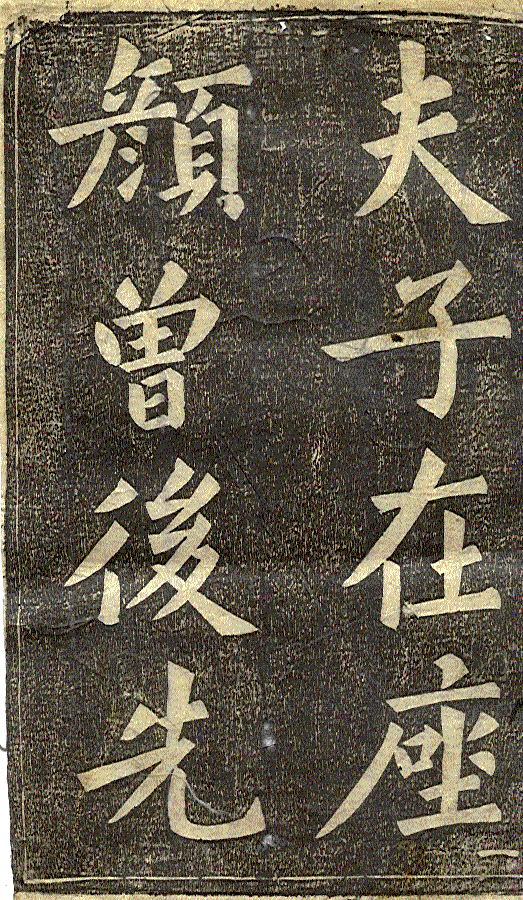 夫子在座
顏曾後先
一